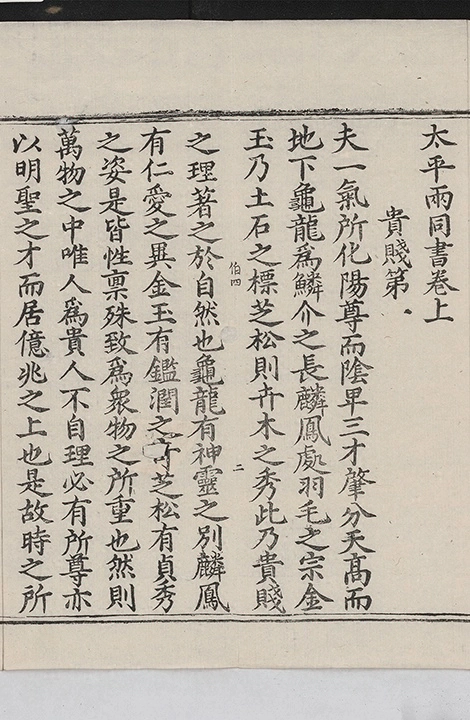 太平兩同書卷上
貴賤第
夫一氣所化陽尊而陰卑三才肈分天髙而
地下龜龍爲鱗介之長麟鳳處羽毛之宗金
玉乃土石之標芝松則卉木之秀此乃貴賤
伯四
二
之理著之於自然也龜龍有神靈之别麟鳳
有仁愛之異金玉有鑑潤之竒芝松有貞秀
之姿是皆性禀殊致爲衆物之所重也然則
萬物之中唯人爲貴人不自理必有所尊亦
以明聖之才而居億兆之上也是故時之所